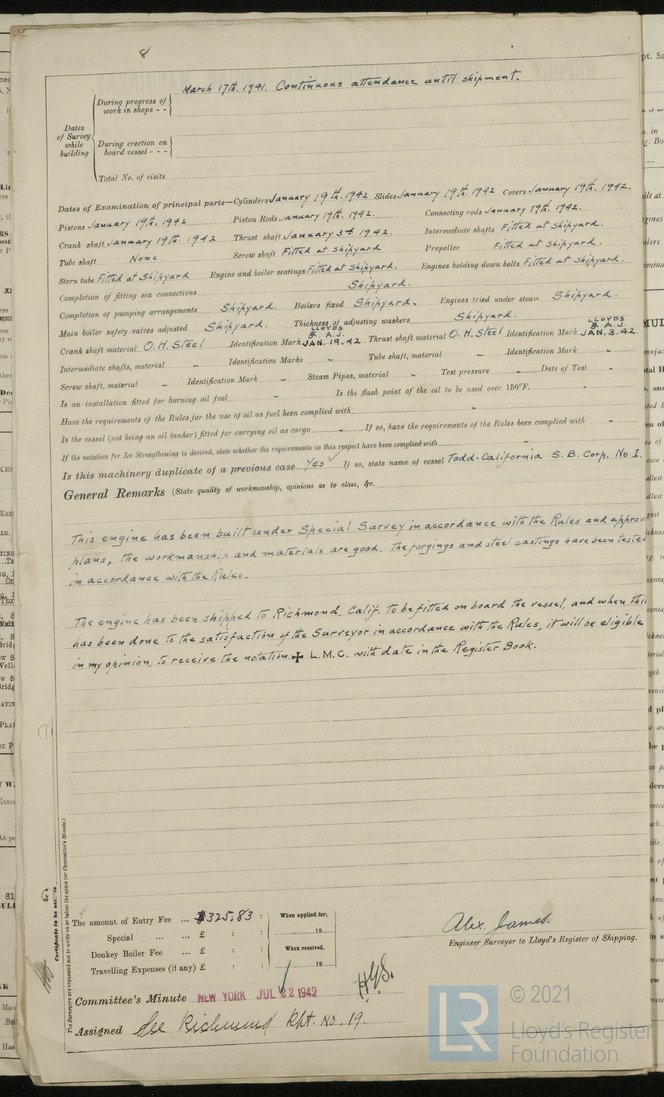 8
March 17th. 1941. Continuous attendance until shipment.
Dates of Survey while building
During progress of work in shops - -
During erection on board vessel - - -
Total No. of visits
Dates of Examination of principal parts—Cylinders January 19th. 1942 Slides January 19th. 1942 Covers January 19th. 1942.
Pistons January 19th. 1942 Piston Rods January 19th. 1942. Connecting rods January 19th. 1942.
Crank shaft January 19th. 1942 Thrust shaft January 3rd. 1942 Intermediate shafts Fitted at shipyard.
Tube shaft None. Screw shaft Fitted at shipyard Propeller Fitted at shipyard.
Stern tube Fitted at Shipyard Engine and boiler seatings Fitted at shipyard. Engines holding down bolts Fitted at shipyard.
Completion of fitting sea connections Shipyard.
Completion of pumping arrangements Shipyard. Boilers fixed Shipyard. Engines tried under steam Shipyard.
Main boiler safety valves adjusted Shipyard. Thickness of adjusting washers Shipyard.
Crank shaft material O.H. Steel Identification Mark LLOYDS A.J. JAN. 19. 42 Thrust shaft material O.H. Steel Identification Mark LLOYDS A.J. JAN. 3. 42
Intermediate shafts, material " Identification Marks " Tube shaft, material " Identification Mark "
Screw shaft, material " Identification Mark " Steam Pipes, material " Test pressure " Date of Test "
Is an installation fitted for burning oil fuel " Is the flash point of the oil to be used over 150°F. "
Have the requirements of the Rules for the use of oil as fuel been complied with "
Is the vessel (not being an oil tanker) fitted for carrying oil as cargo " If so, have the requirements of the Rules been complied with "
If the notation for Ice Strengthening is desired, state whether the requirements in this respect have been complied with "
Is this machinery duplicate of a previous case Yes If so, state name of vessel Todd-California S.B. Corp. No 1.
General Remarks (State quality of workmanship, opinions as to class, &c.
This engine has been built under Special Survey in accordance with the Rules and approv
plans, the workmanship and materials are good. The forgings and steel castings have been tested
in accordance with the Rules.
The engine has been shipped to Richmond, Calif. to be fitted on board the vessel, and when this
has been done to the satisfaction of the Surveyor in accordance with the Rules, it will be eligible
in my opinion, to receive the notation ✠ L.M.C. with date in the Register Book.
The amount of Entry Fee ... $325.83 : When applied for,
Special ... ... £ : : 19
Donkey Boiler Fee ... £ : : When received,
Travelling Expenses (if any) £ : : 19
Alex. James.
Engineer Surveyor to Lloyd's Register of Shipping.
Committee's Minute NEW YORK JUL 22 1942
Assigned See Richmond Rpt. No. 19.
(The Surveyors are requested not to write on or below the space for Committee's Minute.)
LR
© 2021
Lloyd's Register
Foundation